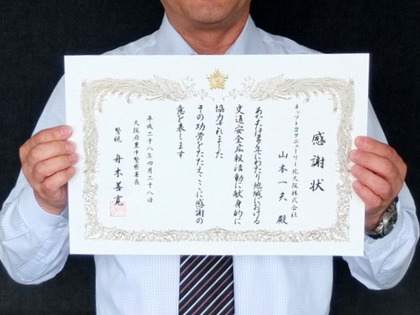 感謝状
ネッツトヨタニューリー北大阪株式会社
山本一夫 殿
あなたは多年にわたり地域における
交通安全広報活動に献身的に
協力されました
その功労をたたえここに感謝の
意を表します
平成二十八年四月二十八日
大阪府豊中警察署長
警視 舟木善寛